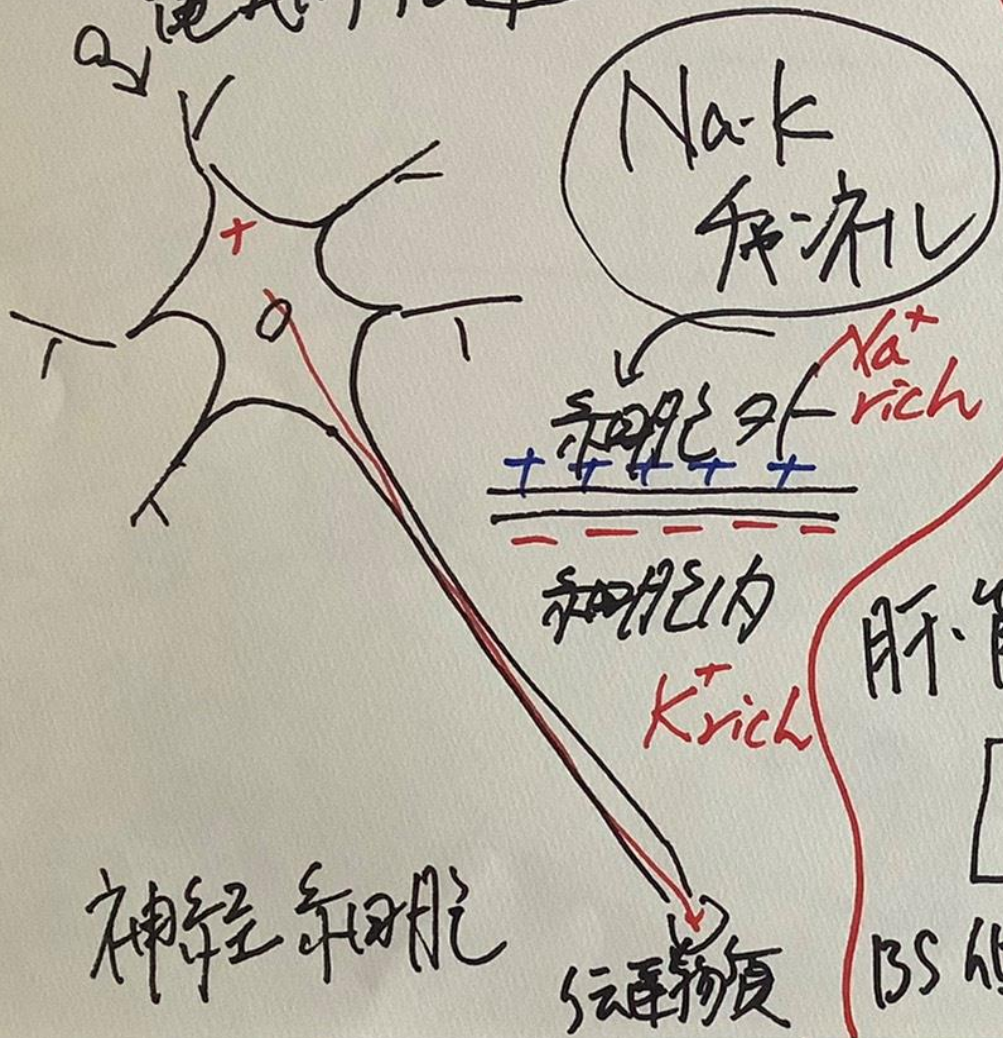 Na-K
チャンネル
Na⁺
rich
細胞外
+ + + + +
− − − − −
細胞内
K⁺rich
+
肝・
神経細胞
伝達物質
BS